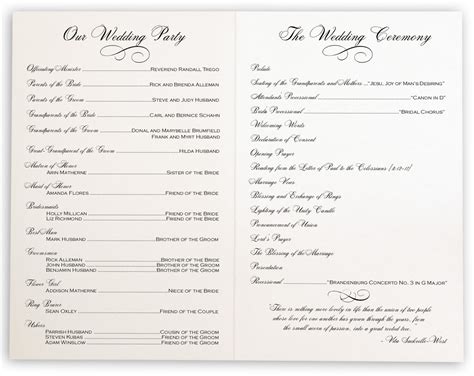 Our Wedding Party
Officiating Minister Reverend Randall Trego
Parents of the Bride Rick and Brenda Alleman
Parents of the Groom Steve and Judy Husband
Grandparents of the Groom Donal and Marybelle Brumfield
Frank and Margaret Husband
Great-Grandparent of the Groom Hilda Husband
Matron of Honor
Arin Matherne Sister of the Bride
Maid of Honor
Amanda Flores Friend of the Bride
Bridesmaids
Holly Millican Friend of the Bride
Liz Richmond Friend of the Bride
Best Man
Mark Husband Brother of the Groom
Groomsmen
Rick Alleman Brother of the Bride
John Husband Brother of the Groom
Benjamin Husband Brother of the Groom
Flower Girl
Addison Matherne Niece of the Bride
Ring Bearer
Sean Oxley Friend of the Couple
Ushers
Parrish Husband Cousin of the Groom
Steven Kubas Friend of the Groom
Adam Winslow Friend of the Groom
The Wedding Ceremony
Prelude
Seating of the Grandparents and Mothers "Jesu, Joy of Man's Desiring"
Attendants Processional "Canon in D"
Bridal Processional "Bridal Chorus"
Welcoming Words
Declaration of Consent
Opening Prayer
Reading from the Letter of Paul to the Colossians (3:12-17)
Marriage Vows
Blessing and Exchange of Rings
Lighting of the Unity Candle
Pronouncement of Union
Lord's Prayer
Blessing of the Marriage
Presentation
Recessional "Brandenburg Concerto No. 3 in G Major"
There is nothing more lovely in life than the union of two people
whose love for one another has grown through the years,
from the small acorn of passion, into a great rooted tree.
- Vita Sackville-West